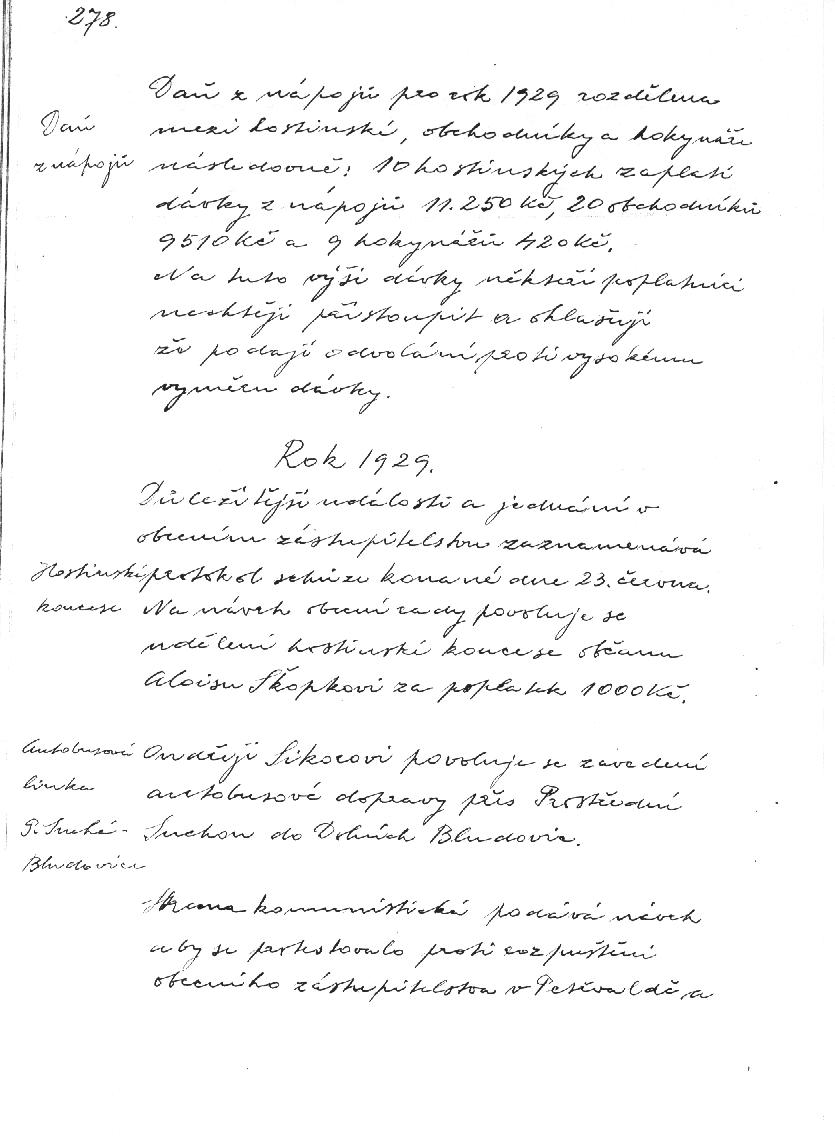 278.
Daň z nápojů pro rok 1929 rozdělena
Daň
mezi hostinské, obchodníky a hokynáře
z nápojů
následovně: 10 hostinských zaplatí
dávky z nápojů 11.250 Kč, 20 obchodníků
9510 Kč a 9 hokynářů 420 Kč.
Na tuto výši dávky někteří poplatníci
nechtějí přistoupit a ohlašují
že podají odvolání proti vysokému
výměru dávky.
Rok 1929.
Důležitější události a jednání v
obecním zastupitelstvu zaznamenává
Hostinská
protokol schůze konané dne 23. června.
koncese
Na návrh obecní rady povoluje se
udělení hostinské koncese občanu
Aloisu Škopkovi za poplatek 1000 Kč.
Autobusová
Ondřeji Sikorovi povoluje se zavedení
linka
autobusové dopravy přes Prostřední
P. Suchá -
Suchou do Dolních Bludovic.
Bludovice
Strana komunistická podává návrh
aby se protestovalo proti rozpuštění
obecního zástupitelstva v Petřvaldě, a